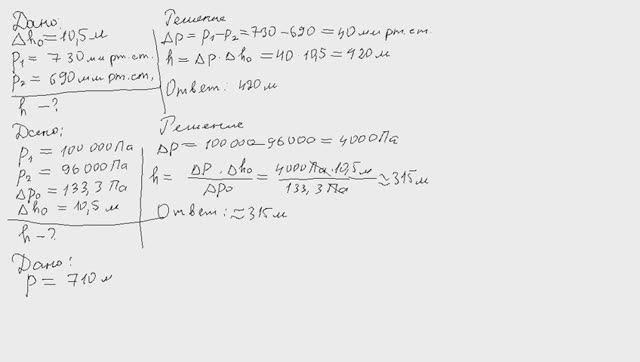 Дано:
Δh₀ = 10,5 м
p₁ = 730 мм рт.ст.
p₂ = 690 мм рт.ст.
h – ?
Решение
Δp = p₁ – p₂ = 730 – 690 = 40 мм рт.ст.
h = Δp · Δh₀ = 40 10,5 = 420 м
Ответ: 420 м
Дано:
p₁ = 100 000 Па
p₂ = 96 000 Па
Δp₀ = 133,3 Па
Δh₀ = 10,5 м
h – ?
Решение
Δp = 100 000 – 96 000 = 4000 Па
h = Δp · Δh₀ / Δp₀ = 4000 Па · 10,5 м / 133,3 Па ≈ 315 м
Ответ: ≈ 315 м
Дано:
p = 710 м